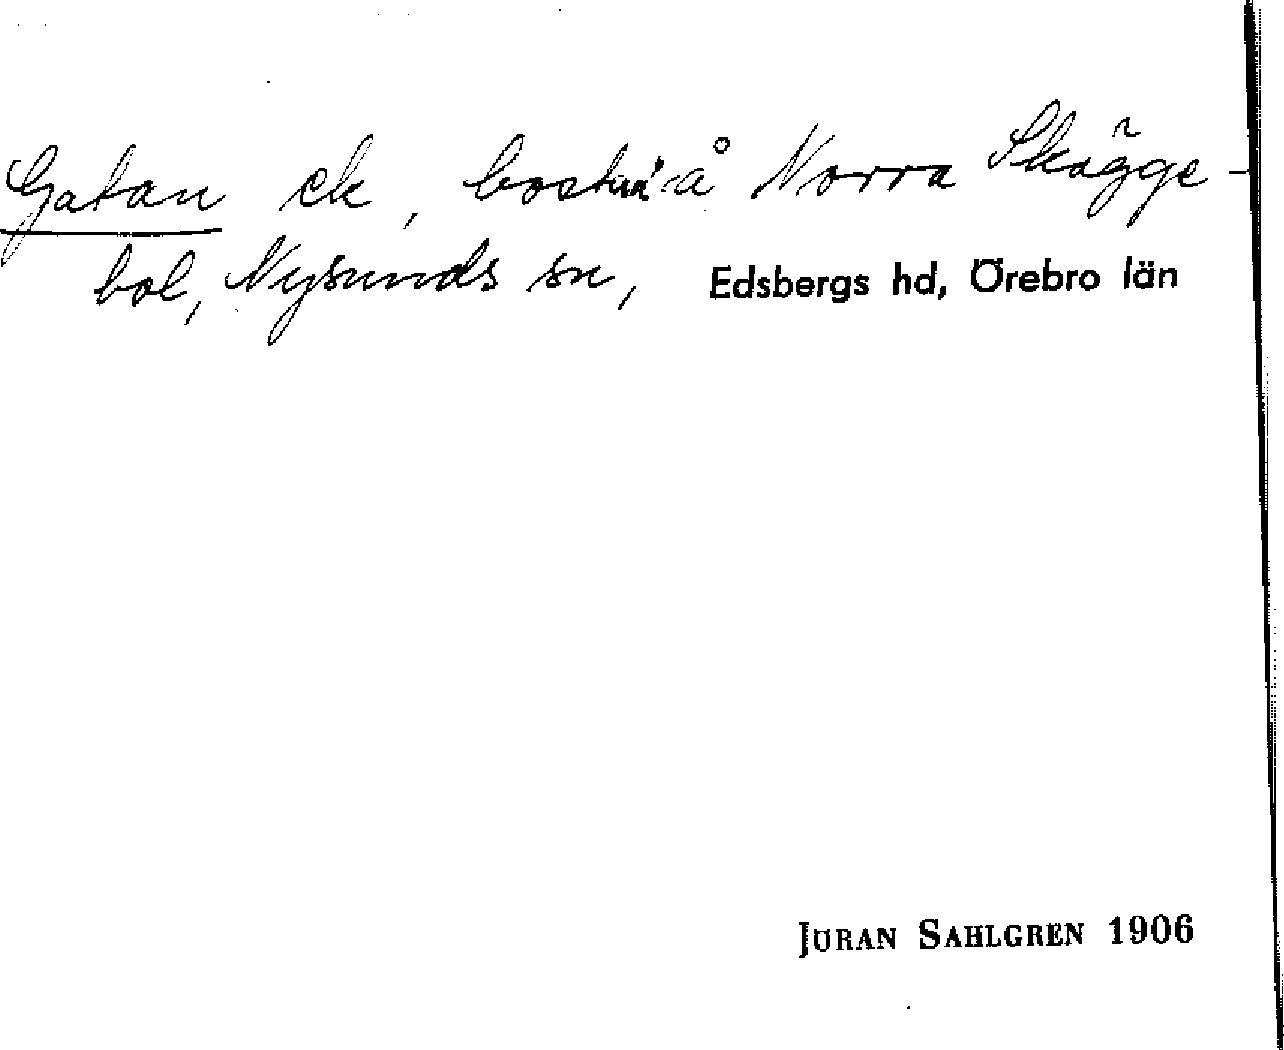 Gatan ck, bostn å Norra Skägge-
bol, Nysunds sn, Edsbergs hd, Örebro län
JÖRAN SAHLGREN 1906